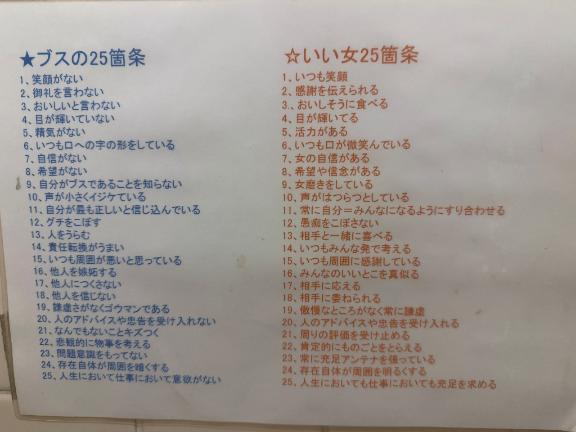 ★ブスの25箇条
1、笑顔がない
2、御礼を言わない
3、おいしいと言わない
4、目が輝いていない
5、精気がない
6、いつも口への字の形をしている
7、自信がない
8、希望がない
9、自分がブスであることを知らない
10、声が小さくイジケている
11、自分が最も正しいと信じ込んでいる
12、グチをこぼす
13、人をうらむ
14、責任転換がうまい
15、いつも周囲が悪いと思っている
16、他人を嫉妬する
17、他人につくさない
18、他人を信じない
19、謙虚さがなくゴウマンである
20、人のアドバイスや忠告を受け入れない
21、なんでもないことキズつく
22、悲観的に物事を考える
23、問題意識をもってない
24、存在自体が周囲を暗くする
25、人生において仕事において意欲がない
☆いい女25箇条
1、いつも笑顔
2、感謝を伝えられる
3、おいしそうに食べる
4、目が輝いてる
5、活力がある
6、いつも口が微笑んでいる
7、女の自信がある
8、希望や信念がある
9、女磨きをしている
10、声がはつらつとしている
11、常に自分＝みんなになるようにすり合わせる
12、愚痴をこぼさない
13、相手と一緒に喜べる
14、いつもみんな発で考える
15、いつも周囲に感謝している
16、みんなのいいとこを真似る
17、相手に応える
18、相手に委ねられる
19、傲慢なところがなく常に謙虚
20、人のアドバイスや忠告を受け入れる
21、周りの評価を受け止める
22、肯定的にものごとをとらえる
23、常に充足アンテナを張っている
24、存在自体が周囲を明るくする
25、人生においても仕事においても充足を求める